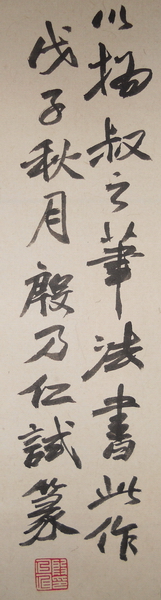 以撝叔之筆法書此作
戊子秋月殷乃仁試篆